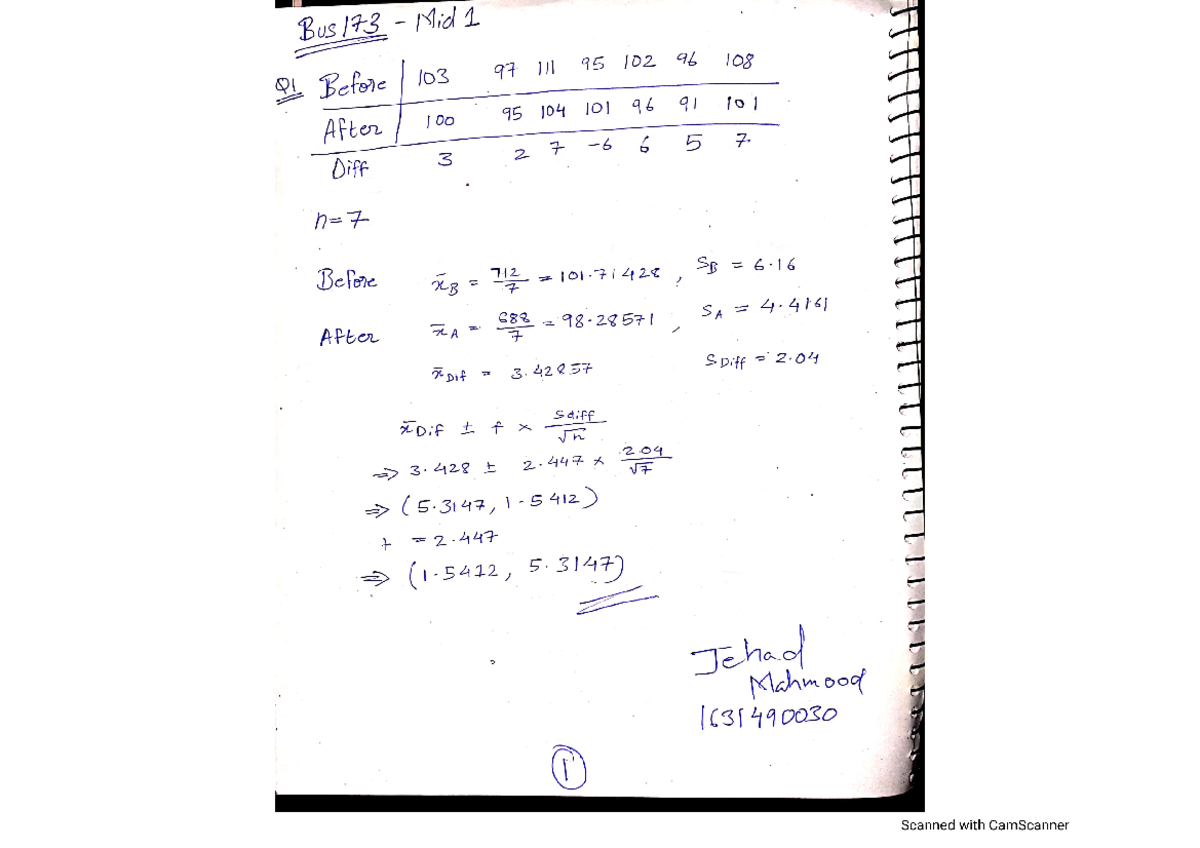 Bus173 - Mid 1
Q1 Before 103 97 111 95 102 96 108
After 100 95 104 101 96 91 101
Diff 3 2 7 -6 6 5 7
n=7
Before x̄B = 712/7 = 101.71428, SB = 6.16
After x̄A = 688/7 = 98.28571, SA = 4.4161
x̄Dif = 3.42857 SDiff = 2.04
x̄Dif ± t × Sdiff/√n
⇒ 3.428 ± 2.447 × 2.04/√7
⇒ (5.3147, 1.5412)
t = 2.447
⇒ (1.5412, 5.3147)
Jehad
Mahmood
1631490030
1
Scanned with CamScanner